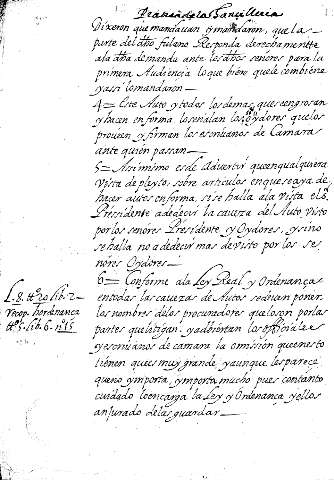 Practica de la Chancilleria
Dixeron que mandauan y mandaron, que la
parte del dho fulano Responda derechamente
a la dha demanda ante los dhos señores para la
primera Audiencia lo que bien que le combiene
y assi lo mandaron —
4= Este Auto y todos los demas, que se engrosan
y hacen en forma los señalan los oydores que los
proueen y firman los escriuanos de Camara
ante quien passan —
5= Assi mismo es de Aduertir que en qualquiera
vista de pleyto, sobre articulos en que se aya de
hazer autos en forma, si se halla a la vista el sr.
Presidente a de decir la caueza del Auto visto
por los señores Presidente, y Oydores, y si no
se halla no a de decir mas de visto por los se
nores Oydores —
6= Conforme a la Ley Real y Ordenanças
en todas las cauezas de Autos se deuen poner
los nombres de los procuradores que lo son por las
partes que litigan, y aduiertan los officiales
y escriuanos de camara la omission que en esto
tienen que es muy grande, y aunque les parece
que no ymporta, ymporta mucho pues con tanto
cuidado lo encarga la Ley y Ordenança y ellos
an jurado de las guardar —
L. 8. tto 20 lib. 2 —
Recop. hordenanca
tto 5. lib. 6. nº 15